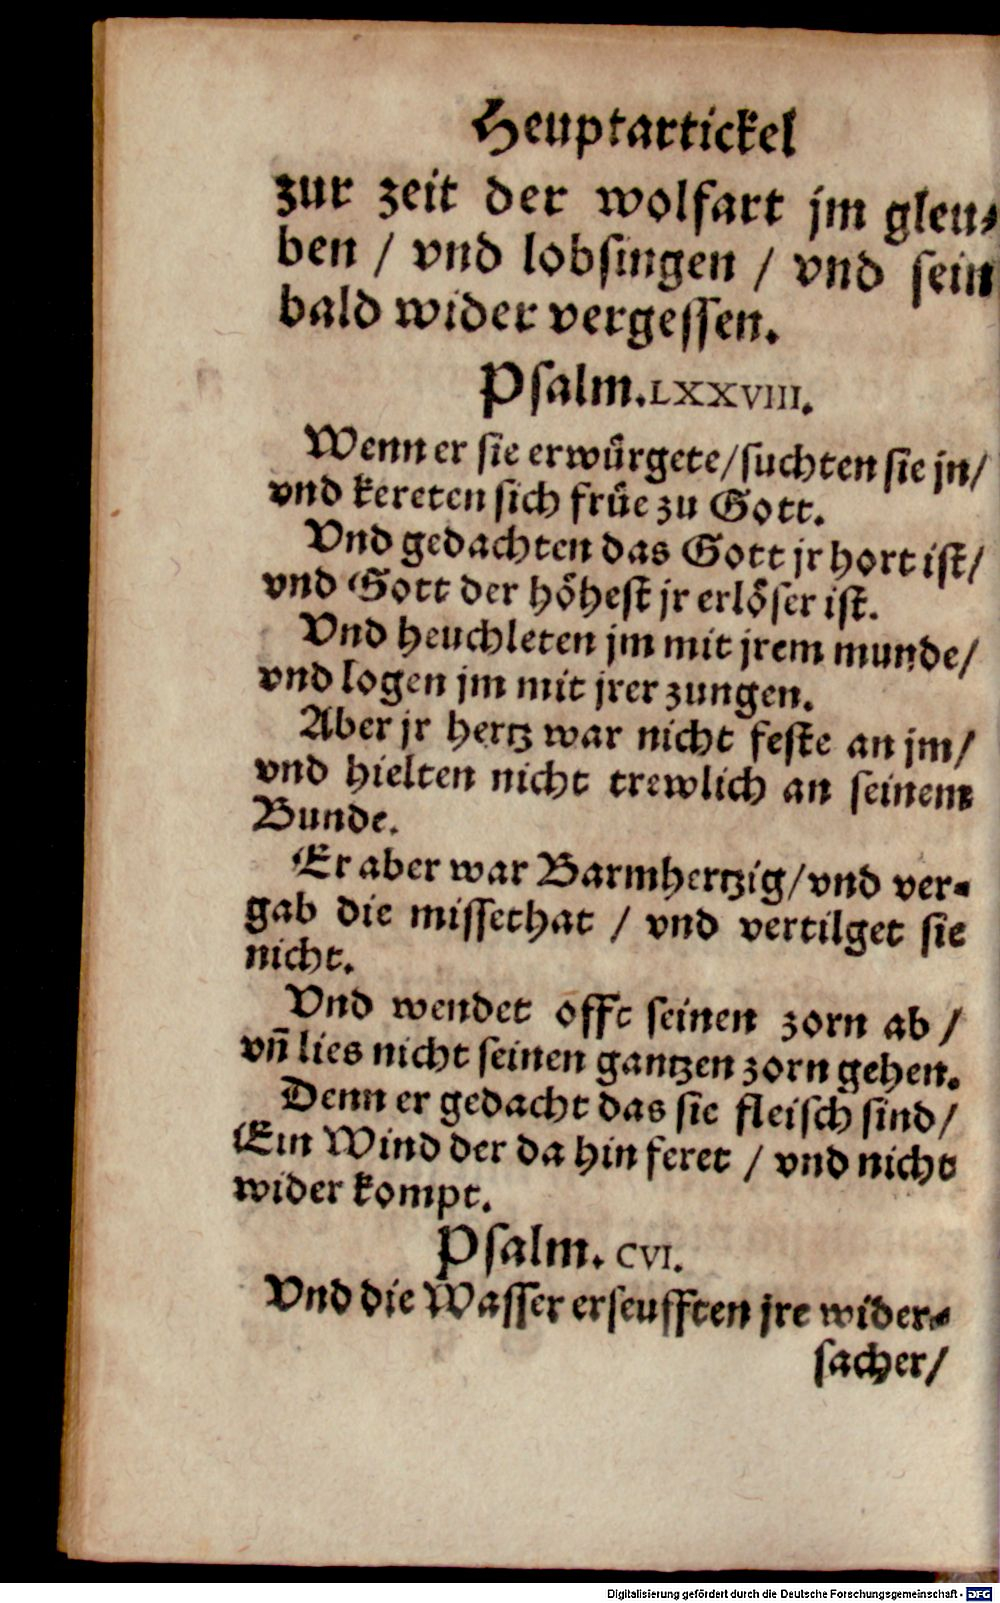 Heuptartickel
zur zeit der wolfart jm gleu⸗
ben / vnd lobsingen / vnd sein
bald wider vergessen.
Psalm. LXXVIII.
Wenn er sie erwürgete / suchten sie jn /
vnd kereten sich früe zu Gott.
Vnd gedachten das Gott jr hort ist /
vnd Gott der höhest jr erlöser ist.
Vnd heuchleten jm mit jrem munde /
vnd logen jm mit jrer zungen.
Aber jr hertz war nicht feste an jm /
vnd hielten nicht trewlich an seinem
Bunde.
Er aber war Barmhertzig / vnd ver⸗
gab die missethat / vnd vertilget sie
nicht.
Vnd wendet offt seinen zorn ab /
vn̄ lies nicht seinen gantzen zorn gehen.
Denn er gedacht das sie fleisch sind /
Ein Wind der da hin feret / vnd nicht
wider kompt.
Psalm. CVI.
Vnd die Wasser erseufften jre wider⸗
sacher /
Digitalisierung gefördert durch die Deutsche Forschungsgemeinschaft - DFG